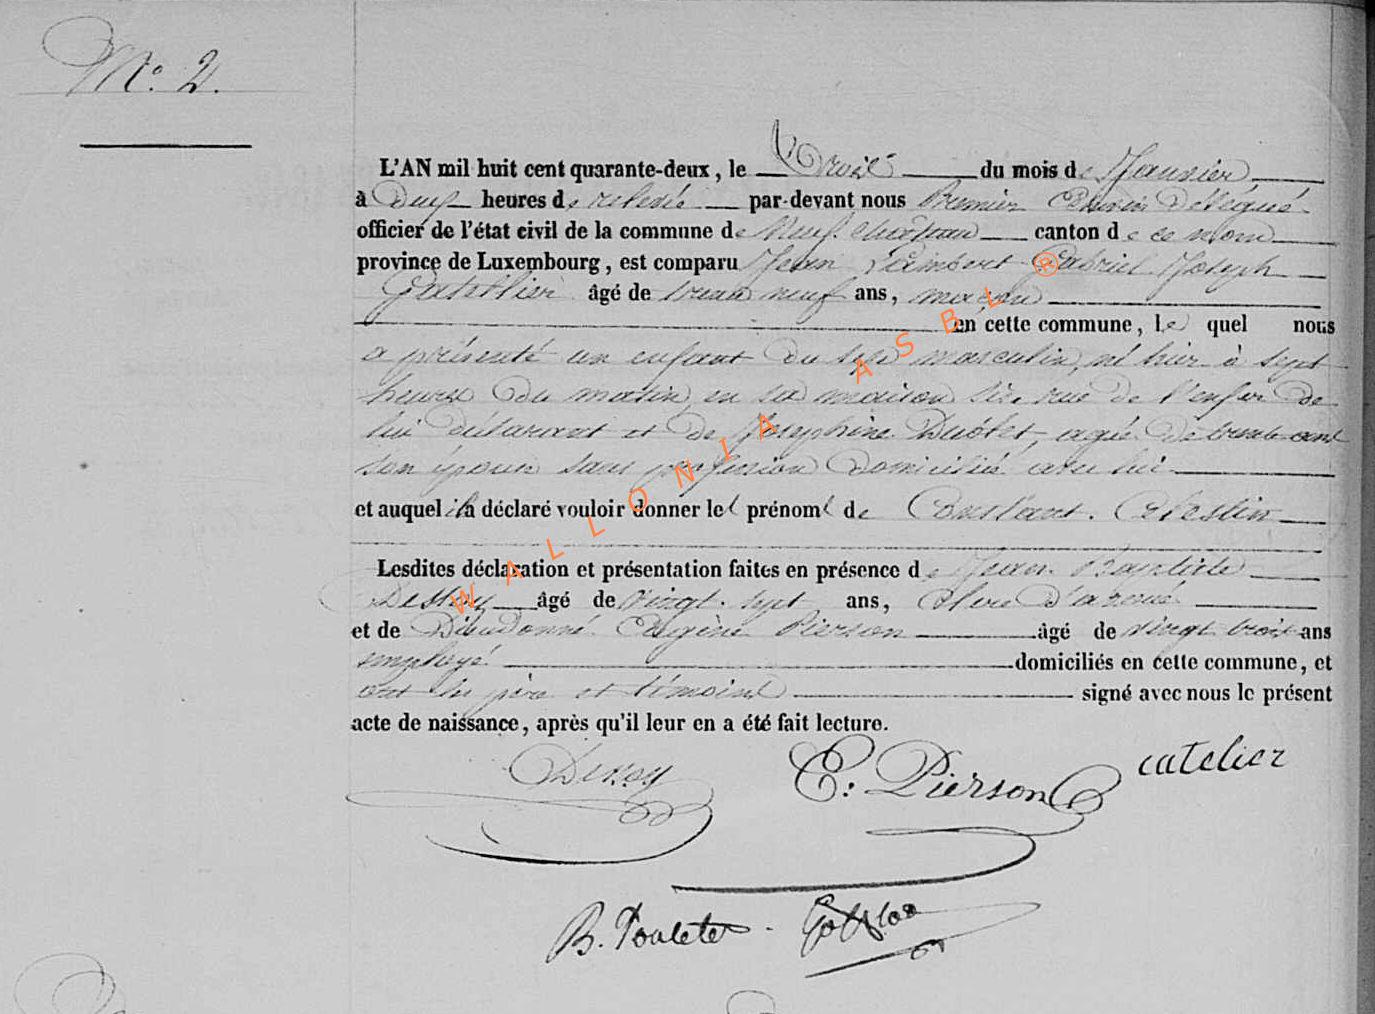 N.° 2.
L'AN mil huit cent quarante-deux, le trois du mois de Janvier
à Deux heures de relevée par-devant nous Premier Echevin Délégué
officier de l'état civil de la commune de Neufchâteau canton de ce nom
province de Luxembourg, est comparu Jean Lambert Gabriel Joseph
âgé de trente neuf ans, maçon
en cette commune, lequel nous
a présenté un enfant du sexe masculin, né hier à sept
heures du matin, en sa maison sise rue de l'enfer de
lui déclarant et de Joséphine agée de trente
son épouse sans profession domiciliée avec lui
et auquel il a déclaré vouloir donner le prénom de Constant. Celestin
Lesdites déclaration et présentation faites en présence de Jean Baptiste
âgé de vingt-sept ans, Clerc d'avoué
et de Dieudonné Eugène Pierson âgé de vingt trois ans
employé domiciliés en cette commune, et
ont les père et témoins signé avec nous le présent
acte de naissance, après qu'il leur en a été fait lecture.
E: Pierson
catelier
B. Poulet
WALLONIA ASBL ®